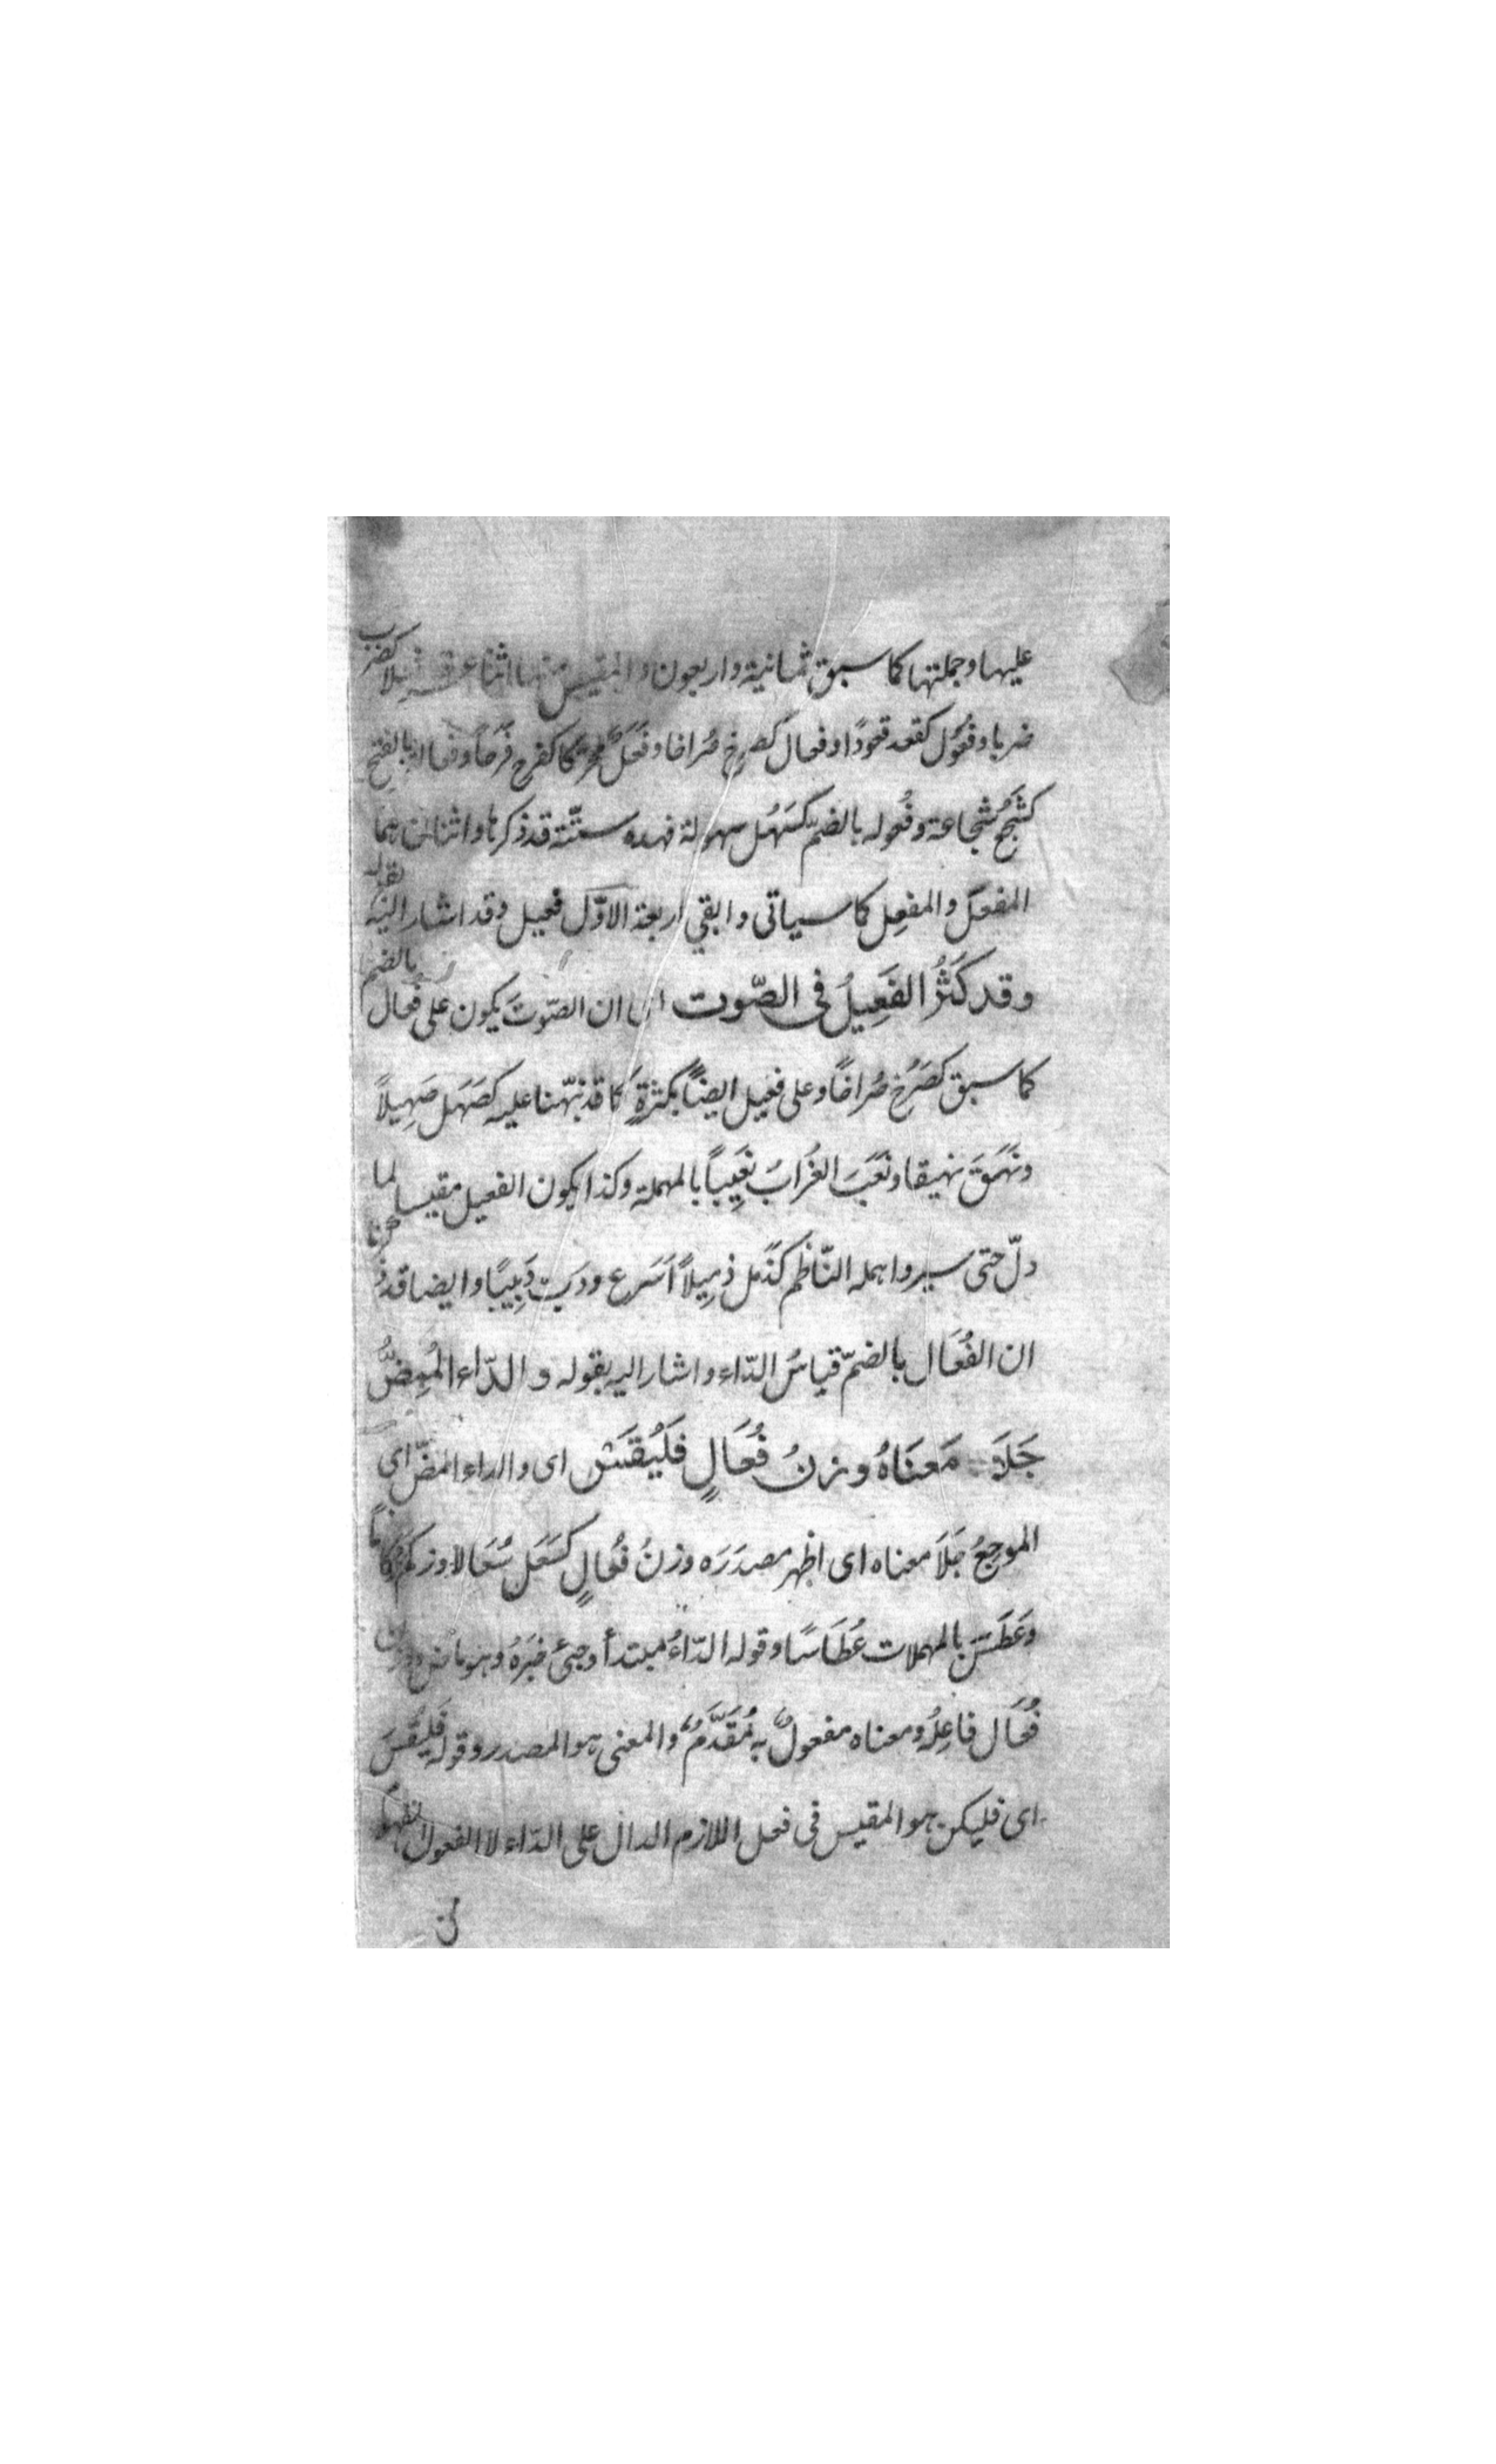 عليها وجملتها كما سبق ثمانية واربعون والمقيس منها اثنا عشر كضرب
ضربا وفُعُول كقعد قعودًا وفعال كصرخ صُراخا وفَعَل محركا كفرح فَرَحًا وفعالة بالفتح
كشَجُع شجاعة وفُعوله بالضمّ كسَهُل سهولة فهذه ستّة قد ذكرها واثنان هما
المفعَل والمفعِل كما سياتى وابقي اربعة الاوّل فعيل وقد اشار اليه بقوله
وقد كَثُرَ الفَعِيلُ فى الصّوت اى ان الصّوتَ يكون على فُعال بالضم
كما سبق كصَرَخ صُراخًا وعلى فعيل ايضًا بكثرةٍ كما قد نبّهنا عليه كصَهَل صَهِيلاً
ونَهَقَ نهيقا ونَعَبَ الغُرَابُ نَعِيبًا بالمهملة وكذا يكون الفعيل مقيسا لما
دلّ حتى سير واهمله النّاظم كذَمل ذمِيلاً اَسَرع ودَبّ دَبِيبًا وايضا قد ذكرنا
ان الفُعَال بالضمّ قياسُ الدّاء واشار اليه بقوله والدّاء المُمِضُّ
جَلَا مَعنَاهُ وزنُ فُعَالٍ فَليُقَس اى والداء الممضّ اى
الموجِعُ جَلَا معناه اى اظهر مصدَرَه وزنُ فُعالٍ كسَعَل سُعَالا وزكم زكامًا
وَعَطَسَ بالمهملات عُطَاسًا وقوله الدّاءُ مبتدأ وجئ خبَرَهُ وهو ماض ووزن
فُعَال فاعِلُه ومعناه مفعولٌ به مُقَدَّمٌ والمعنى هو المصدر وقوله فَليُقَس
اى فليكن هو المقيس فى فعل اللازم الدال على الدّاء لا الفعول